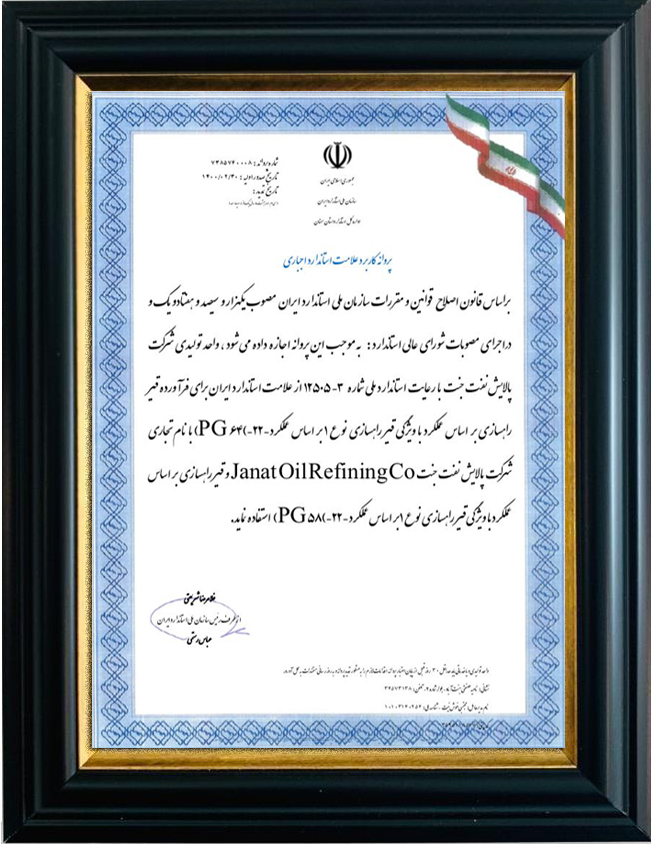 جمهوری اسلامی ایران
سازمان ملی استاندارد ایران
اداره کل استاندارد استان سمنان
شماره پروانه: ۷۳۸۵۷۴۰۰۰۸
تاریخ صدور اولیه: ۱۴۰۰/۰۲/۳۰
تاریخ تمدید:
پروانه کاربرد علامت استاندارد اجباری
براساس قانون اصلاح قوانین و مقررات سازمان ملی استاندارد ایران مصوب یکهزار و سیصد و هفتاد و یک و
در اجرای مصوبات شورای عالی استاندارد: به موجب این پروانه اجازه داده می شود، واحد تولیدی شرکت
پالایش نفت جنت با رعایت استاندارد ملی شماره ۳-۱۲۵۰۵ از علامت استاندارد ایران برای فرآورده قیر
راهسازی بر اساس عملکرد با ویژگی قیر راهسازی نوع ۱بر اساس عملکرد-۲۲-)PG ۶۴) با نام تجاری
شرکت پالایش نفت جنت Janat Oil Refining Co و قیر راهسازی بر اساس
عملکرد با ویژگی قیر راهسازی نوع ۱بر اساس عملکرد-۲۲-)PG ۵۸) استفاده نماید.
غلامرضا شریعتی
از طرف رئیس سازمان ملی استاندارد ایران
عباس رستمی